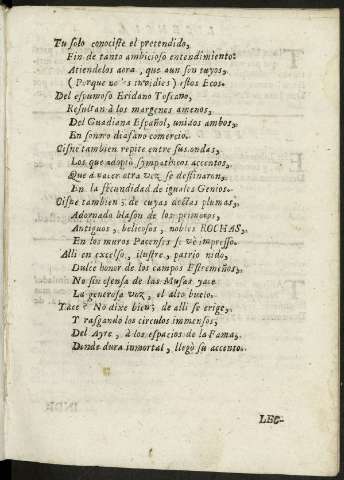 Tu solo conociste el pretendido,
Fin de tanto ambicioso entendimiento:
Atiendelos aora, que aun son tuyos,
(Porque no los embidies) estos Ecos.
Del espumoso Eridano Toscano,
Resultan à los margenes amenos,
Del Guadiana Español, unidos ambos,
En sonoro diafano comercio.
Cisne tambien repite entre sus ondas,
Los que adoptò sympathicos accentos,
Que à nacer otra vez se destinaron,
En la fecundidad de iguales Genios.
Cisne tambien; de cuyas doctas plumas,
Adornado blason de los primeros,
Antiguos, belicosos, nobles ROCHAS,
En los muros Pacenses se vè impresso.
Alli en excelso, ilustre, patrio nido,
Dulce honor de los campos Estremeños,
No sin ofensa de las Musas yace
La generosa voz, el alto buelo.
Yace? No dixe bien; de alli se erige,
Trasgando los circulos immensos;
Del Ayre, à los espacios de la Fama;
Donde dura inmortal, llegò su accento.
LEC-